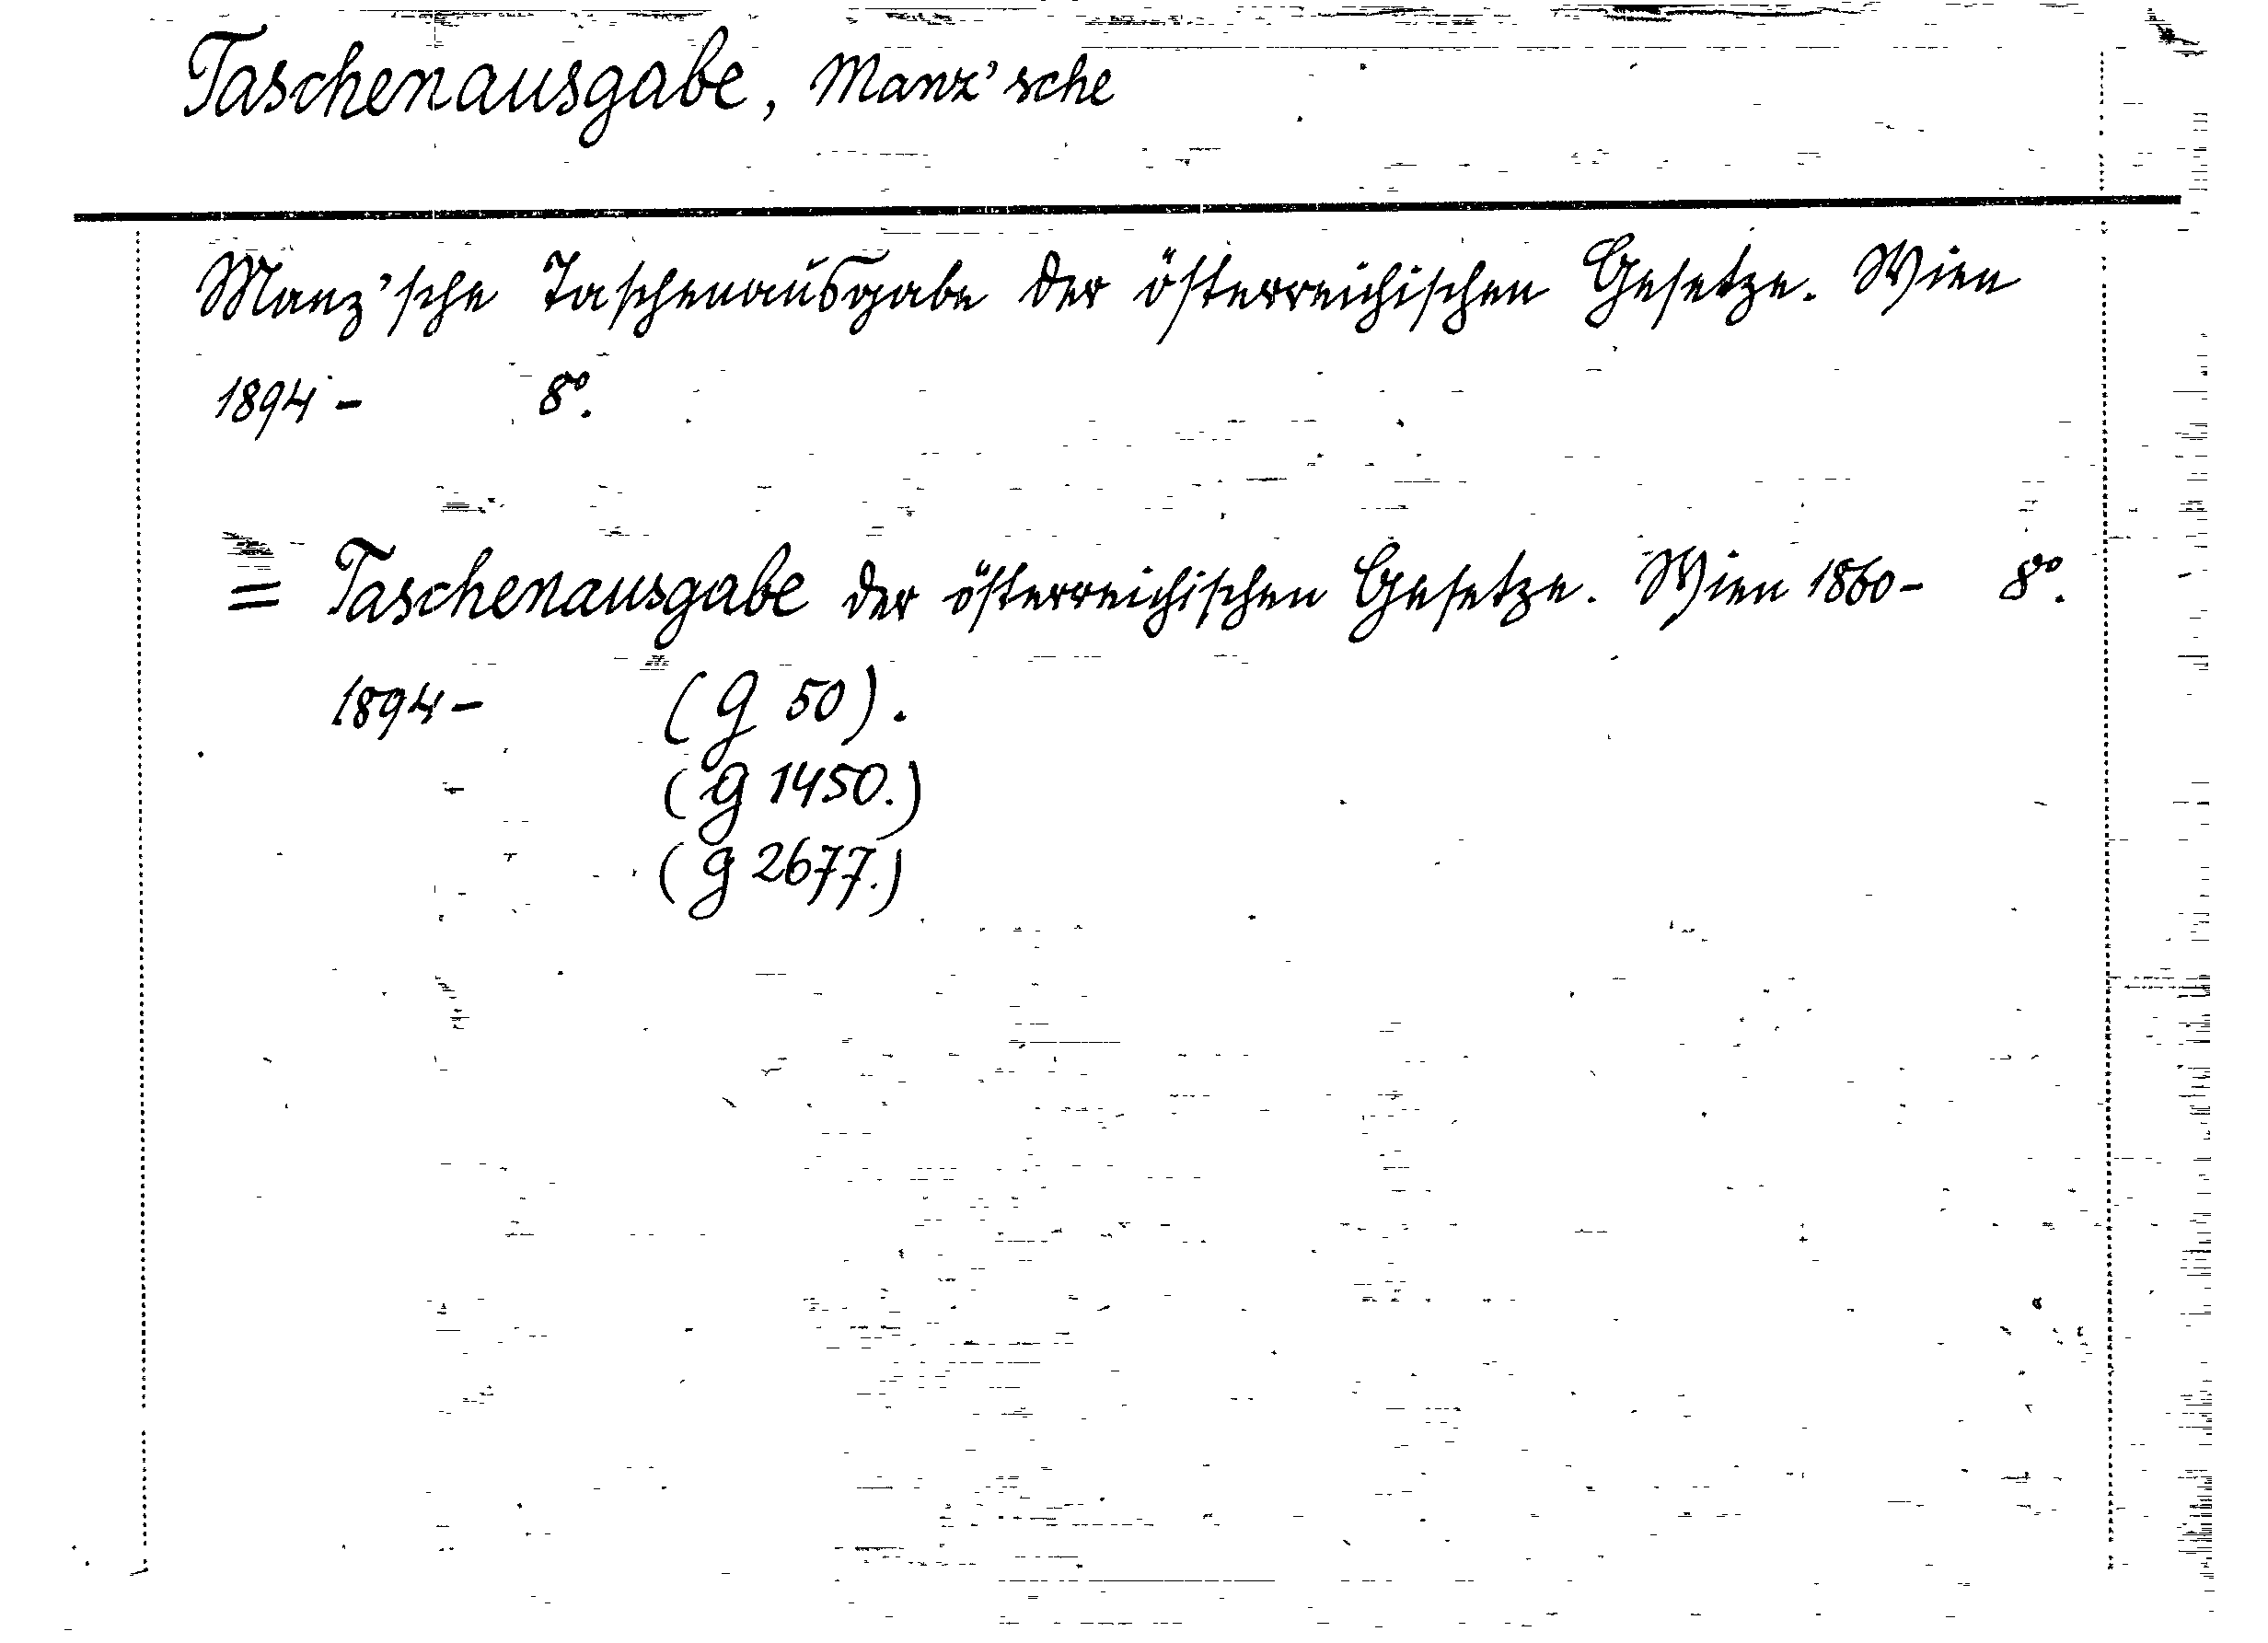 Taschenausgabe, Manz'sche
Manz'sche Taschenausgabe der österreichischen Gesetze. Wien
1894- 8°.
= Taschenausgabe der österreichischen Gesetze. Wien 1860- 8°.
1894- (G 50).
(G 1450.)
(G 2677.)